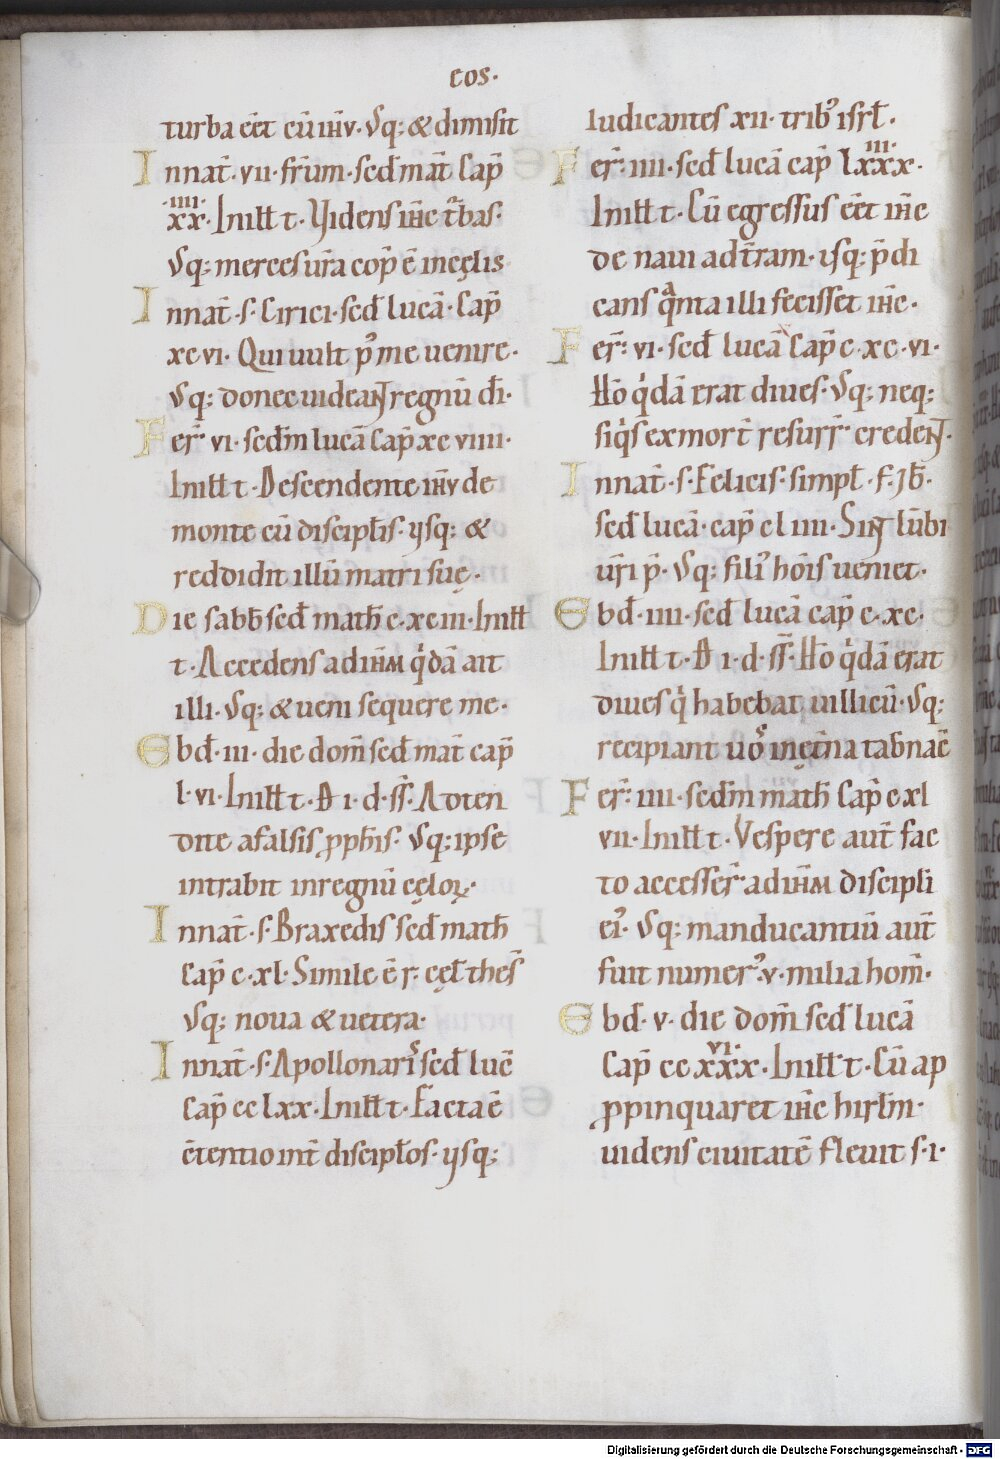 eos.
turba ēēt cū ihv̄. Vsq; & dimisit
In nat̄. vii. fr̄um. sed̄ mat̄ Cap̄
xx. iiii Initt t. Videns ihc̄ t̄bas.
Vsq; merces ur̄a cop̄ ē in cęlis
In nat̄. s. Cirici. sed̄ lucā. Cap̄
xcvi. Qui uult p᷒ me uenire.
Vsq; donec uideant regnū dī.
Fer̄. vi. sed̄m lucā Cap̄ xcviiii.
Initt t. Descendente ihv̄ de
monte cū discipl̄is. ysq; &
reddidit illū matri suę.
Die sabb̄ sed̄ math̄ c. xciii. Initt
t. Accedens ad ihm̄ qͥdā ait
illi. Vsq; & ueni sequere me.
Ebd̄. iii. die dom̄ sed̄ mat̄ cap̄
l. vi. Initt t. D̄ i. d. ss̄. Adten
dite a falsis ꝓph̄is. Vsq; ipse
intrabit in regnū cęloꝝ.
In nat̄. s. Braxedis sed̄ math̄
Cap̄ c. xl. Simile ē r. cęl̄ thes̄
Vsq; noua & uetera.
In nat̄. s. Apollonaris sed̄ luc̄
Cap̄ cc lxx. Initt t. Facta ē
c̄tentio int̄ discipl̄os. ysq;
Iudicantes xii. trib᷒ isrl̄.
Fer̄. iiii. sed̄ lucā cap̄ lxxx. iii.
Initt t. Cū egressus ēēt ihc̄
de naui ad t̄ram. isq; p̄di
cans qͣnta illi fecisset ihc̄.
Fer̄. vi. sed̄ lucā Cap̄ c. xc. vi.
Hō qͥdā erat diues. Vsq; neq;
si qͥs ex mort̄ resurr̄ credent.
In nat̄. s. Felicis. simpl̄. f. Jb̄.
sed̄ lucā. cap̄ cliiii. Sint lūbi
ūri p̄. Vsq; fili᷒ hōis ueniet.
Ebd̄. iiii. sed̄ lucā cap̄ c. xc.
Initt t. D̄ i. d. ss̄. Hō qͥdā erat
diues qͥ habebat uillicū. Vsq;
recipiant uos in ęt̄na tab̄nac̄
Fer̄. iiii. sed̄m math̄ Cap̄ cxl
vii. Initt t. Vespere aut̄ fac
to accesser̄ ad ihm̄ discipli
ei᷒. Vsq; manducantiū aut̄
fuit numer᷒. v. milia hom̄.
Ebd̄. v. die dom̄ sed̄ lucā
Cap̄ cc xxx. vi. Initt t. Cū ap
ꝓpinquaret ihc̄ hirl̄m.
uidens ciuitatē fleuit s. i.
Digitalisierung gefördert durch die Deutsche Forschungsgemeinschaft - DFG